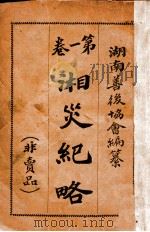 湖南善後協會編纂
湘災紀略
第一卷
(非賣品)